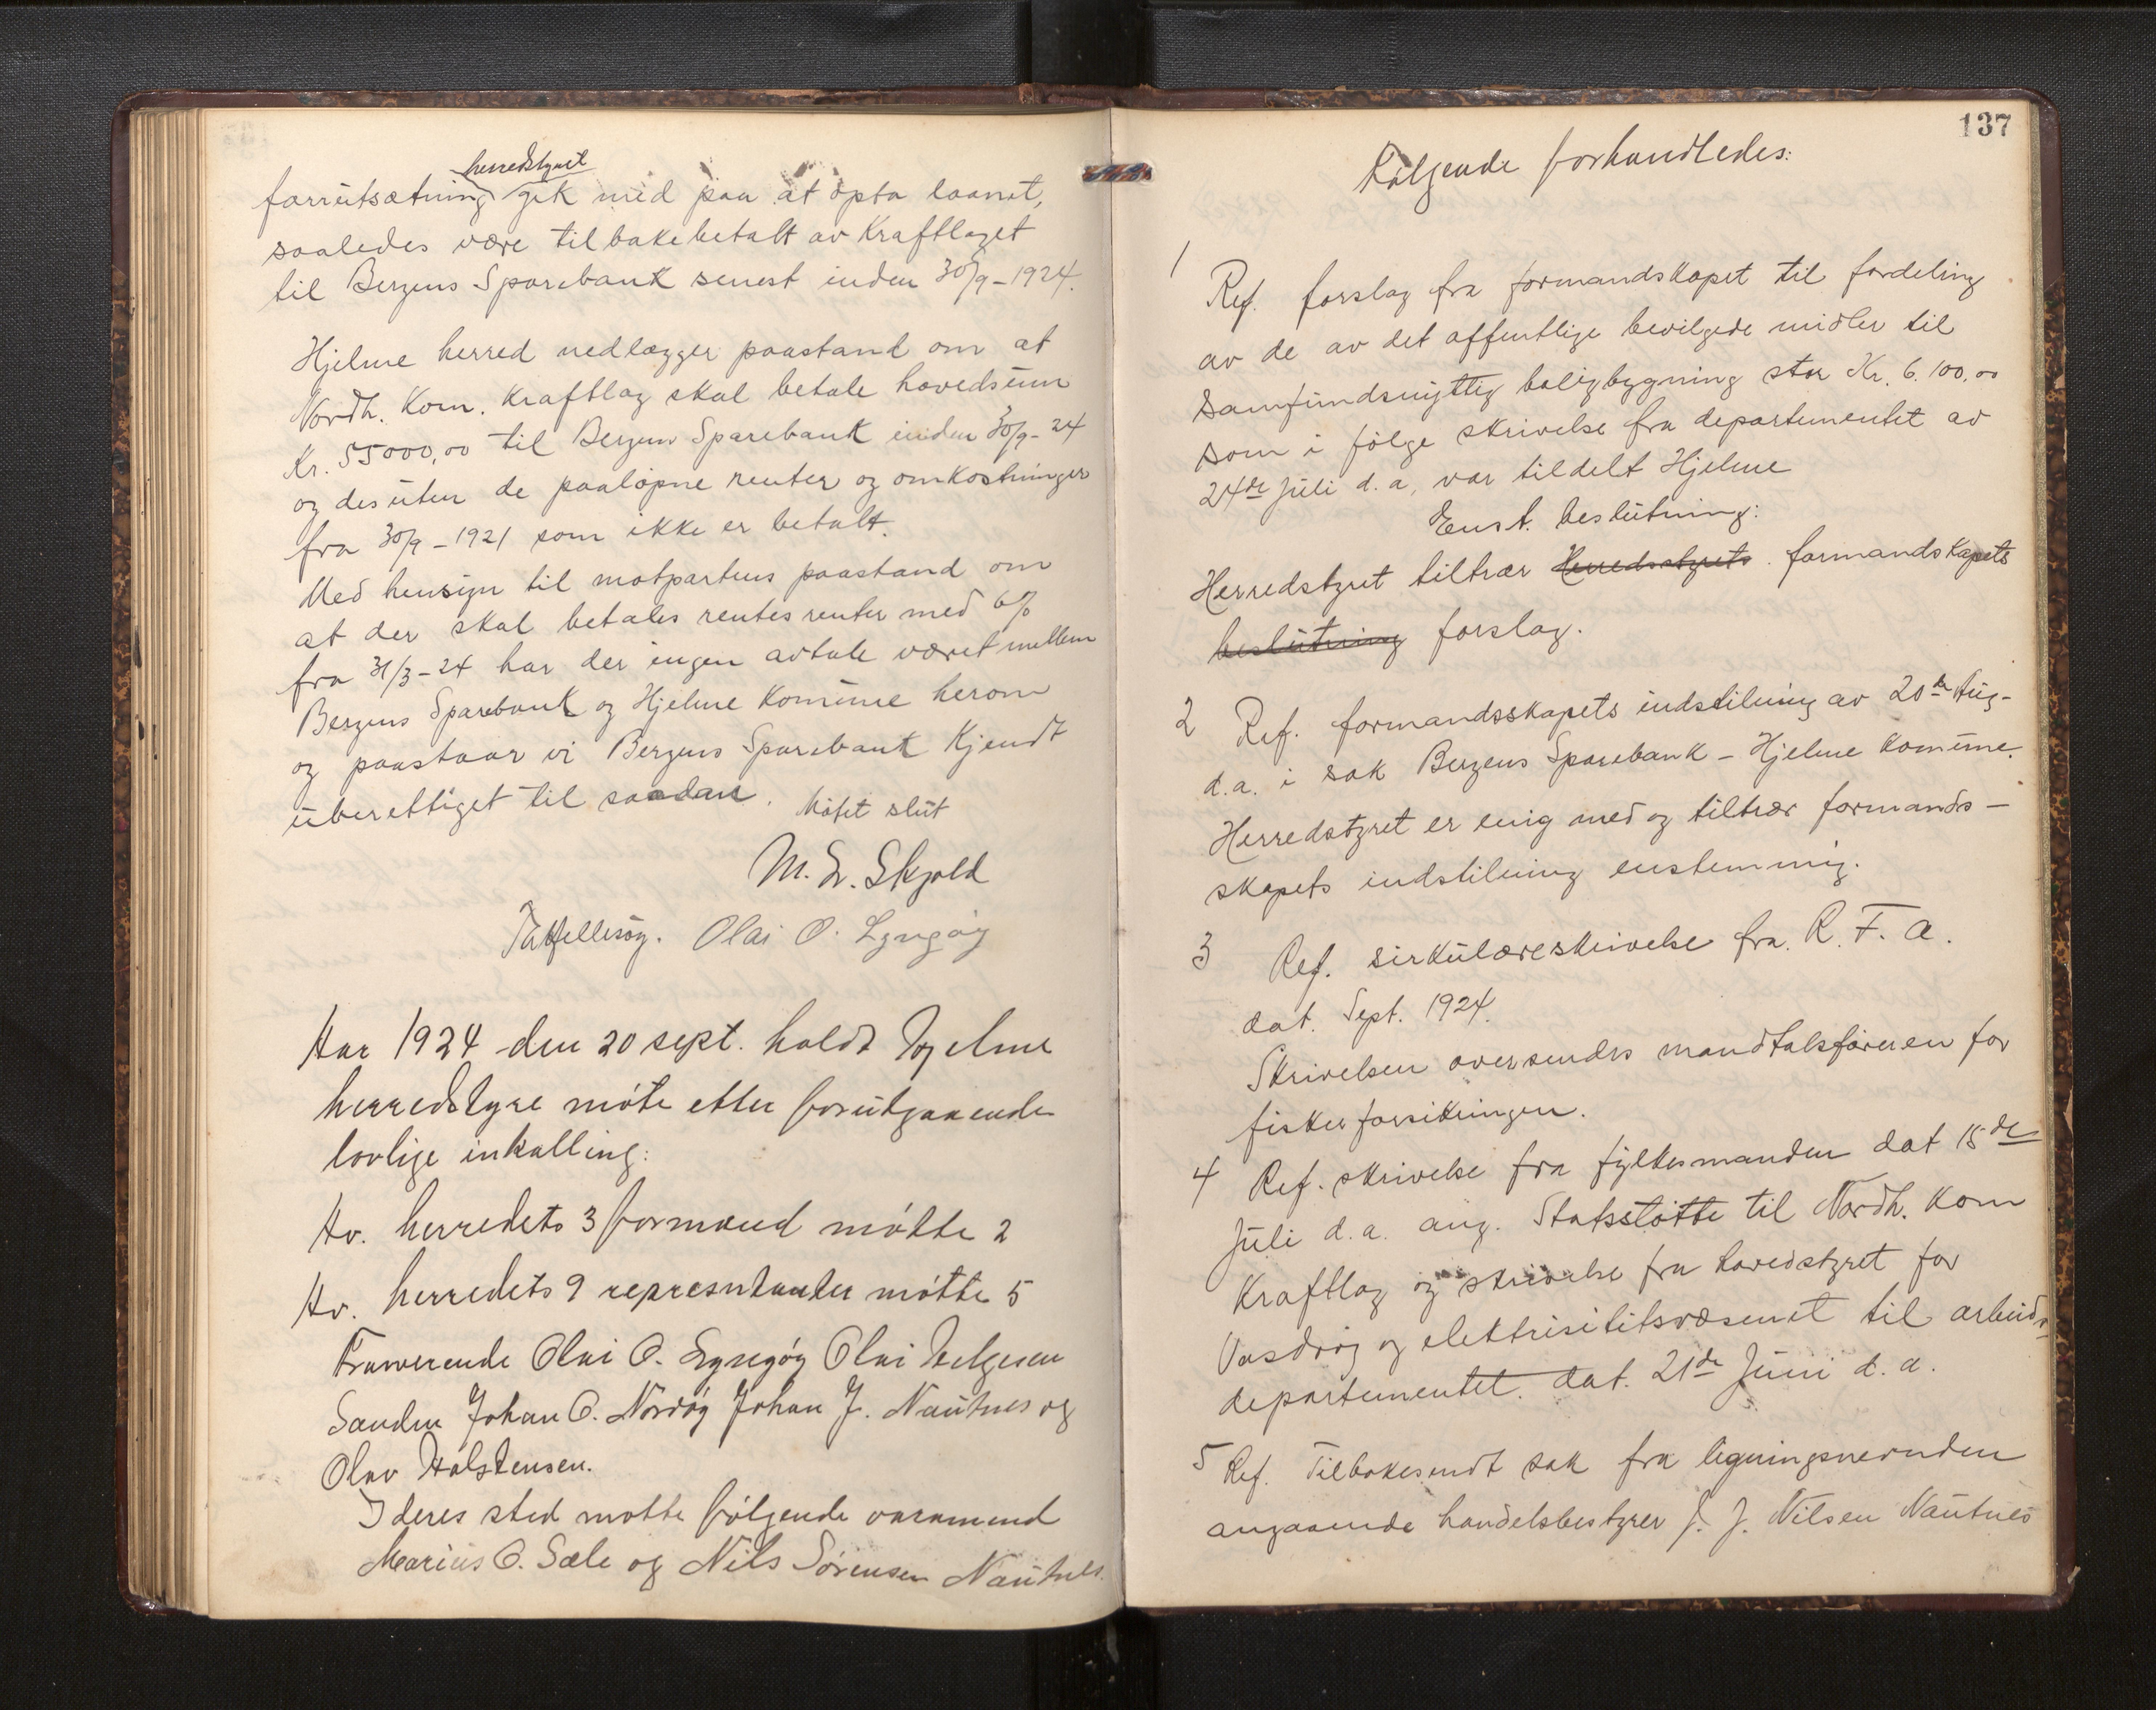 herredstyret
forrutsætning gik med paa at opta laanet,
saaledes være tilbakebetalt av Kraftlaget
til Bergens Sparebank senest inden 30/9-1924.
Hjelme herred nedlægger paastand om at
Nordh. Kom. Kraftlag skal betale hovedsum
Kr. 55000,00 til Bergens Sparebank inden 30/9-24
og desuten de paaløpne renter og omkostninger
fra 30/9-1921 som ikke er betalt.
Med hensyn til motpartens paastand om
at der skal betales rentesrenter med 6%
fra 31/3-24 har der ingen avtale været mellem
Bergens Sparebank og Hjelme Komune herom
og paastaar vi Bergens Sparebank Kjendt
uberettiget til saadan. Møtet slut
M. L. Skjold
Olai O. Lyngøy
Aar 1924 den 20 sept. holdt Hjelme
herredstyre møte etter forutgaaende
lovlige inkalling:
Av. herredets 3 formænd møtte 2
Av. herredets 9 represntanter møtte 5
Fraverende Olai O. Lyngøy Olai Helgesen
Sanden Johan O. Nordøy Johan J. Nautnes og
Olav Halstensen.
I deres sted møtte følgende varamend
Marius O. Sæle og Nils Sørensen Nautnes.
137
Følgende forhandledes:
1
Ref. forslag fra formandskapet til fordeling
av de av det offentlige bevilgede midler til
Samfundsnyttig boligbygning stor Kr. 6.100,00
som i følge skrivelse fra departementet av
24de Juli d.a. var tildelt Hjelme
Enst. beslutning:
Herredstyret tiltrær Herredsstyrets. formandskapets
beslutning forslag.
2 Ref. formandsskapets indstilning av 20de Aug-
d.a. i sak Bergens Sparebank - Hjelme Komune.
Herredstyret er enig med og tiltrær formands-
skapets indstilning enstemmig.
3 Ref. sirkulæreskrivelse fra R. F. A.
dat. Sept. 1924.
Skrivelsen oversendes mandtalsføreren for
fiskerforsikringen.
4 Ref. skrivelse fra fylkesmanden dat 15de
Juli d.a. ang. Statsstøtte til Nordh. Kom
Kraftlag og skrivelse fra hovedstyret for
Vasdrag og elektrisititsvæsenet til arbeids-
departementet. dat. 21de Juni d.a.
5 Ref. Tilbakesendt sak fra ligningsnevnden
angaaende handelsbestyrer J. J. Nilsen Nautnes